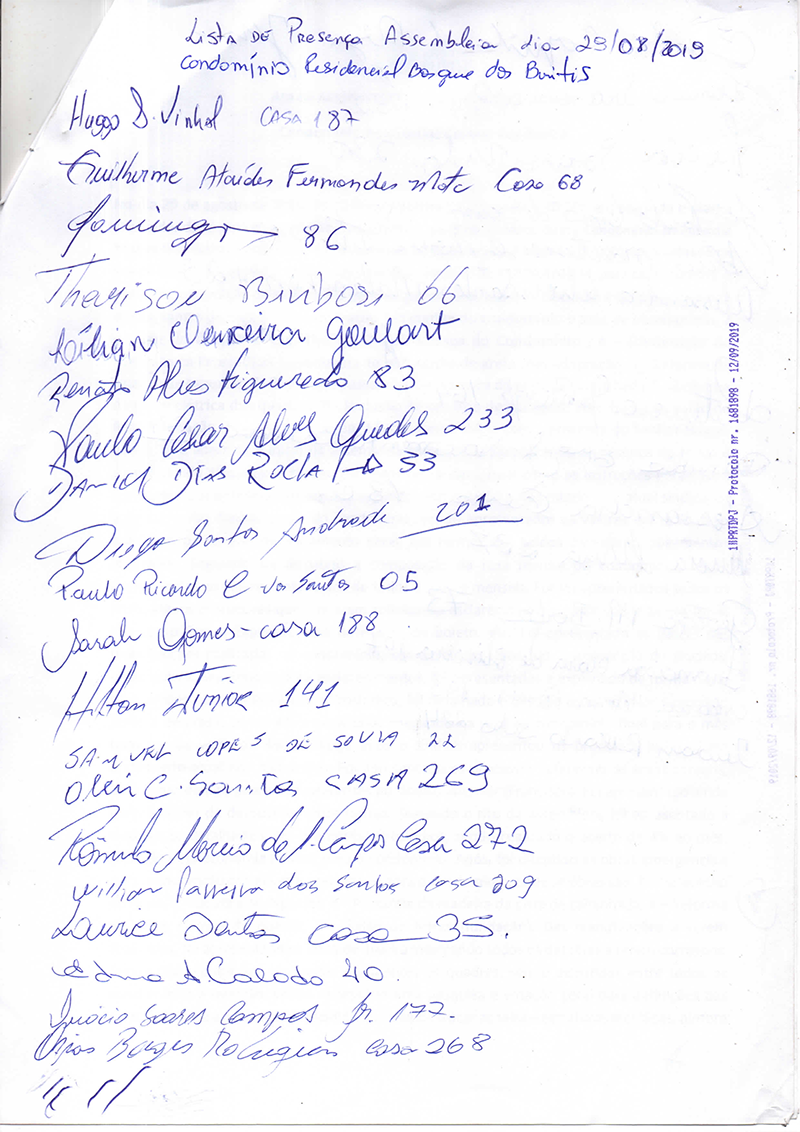 Lista de Presença Assembleia dia 29/08/2019
Condomínio Residencial Bosque dos Buritis
Huggo D. Vinhal CASA 187
Guilherme Ataídes Fernandes Mota Casa 68
Domingos 86
Therison Barbosa 66
Lílian Goulart
Renato Alves Figueredo 83
Paulo Cesar Alves Guedes 233
DANIEL DIAS ROCHA 33
Diogo Santos Andrade 201
Paulo Ricardo C dos Santos 05
Sarah Gomes - casa 188
Hilton Junior 141
SAMUEL LOPES DE SOUZA 22
C. Santos CASA 269
Rômulo Campos Casa 272
Willian Parreira dos Santos casa 209
Laurice Dantas casa 35.
40.
Soares Campos Jr. 177.
Borges Rodrigues casa 268
1ºPRTDPJ - Protocolo nr. 1681898 - 12/09/2019